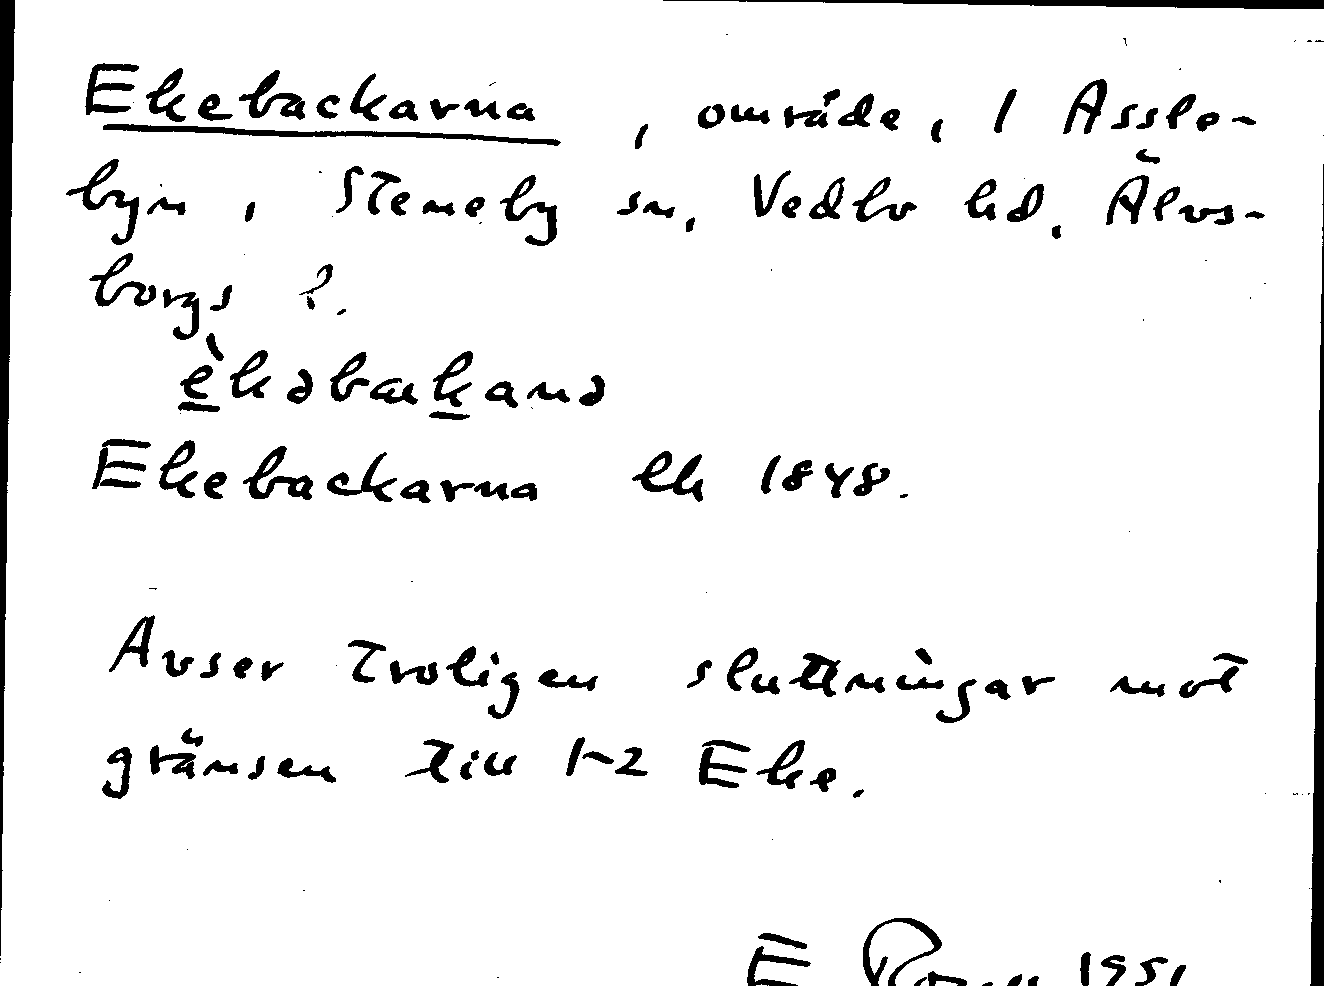 Ekebackarna, område, 1 Assle-
byn, Steneby sn, Vedbo hd, Älvs-
borgs l.
èkəbackanə
Ekebackarna lk 1848.
Avser troligen sluttningar mot
gränsen till 1-2 Eke.
E 1951